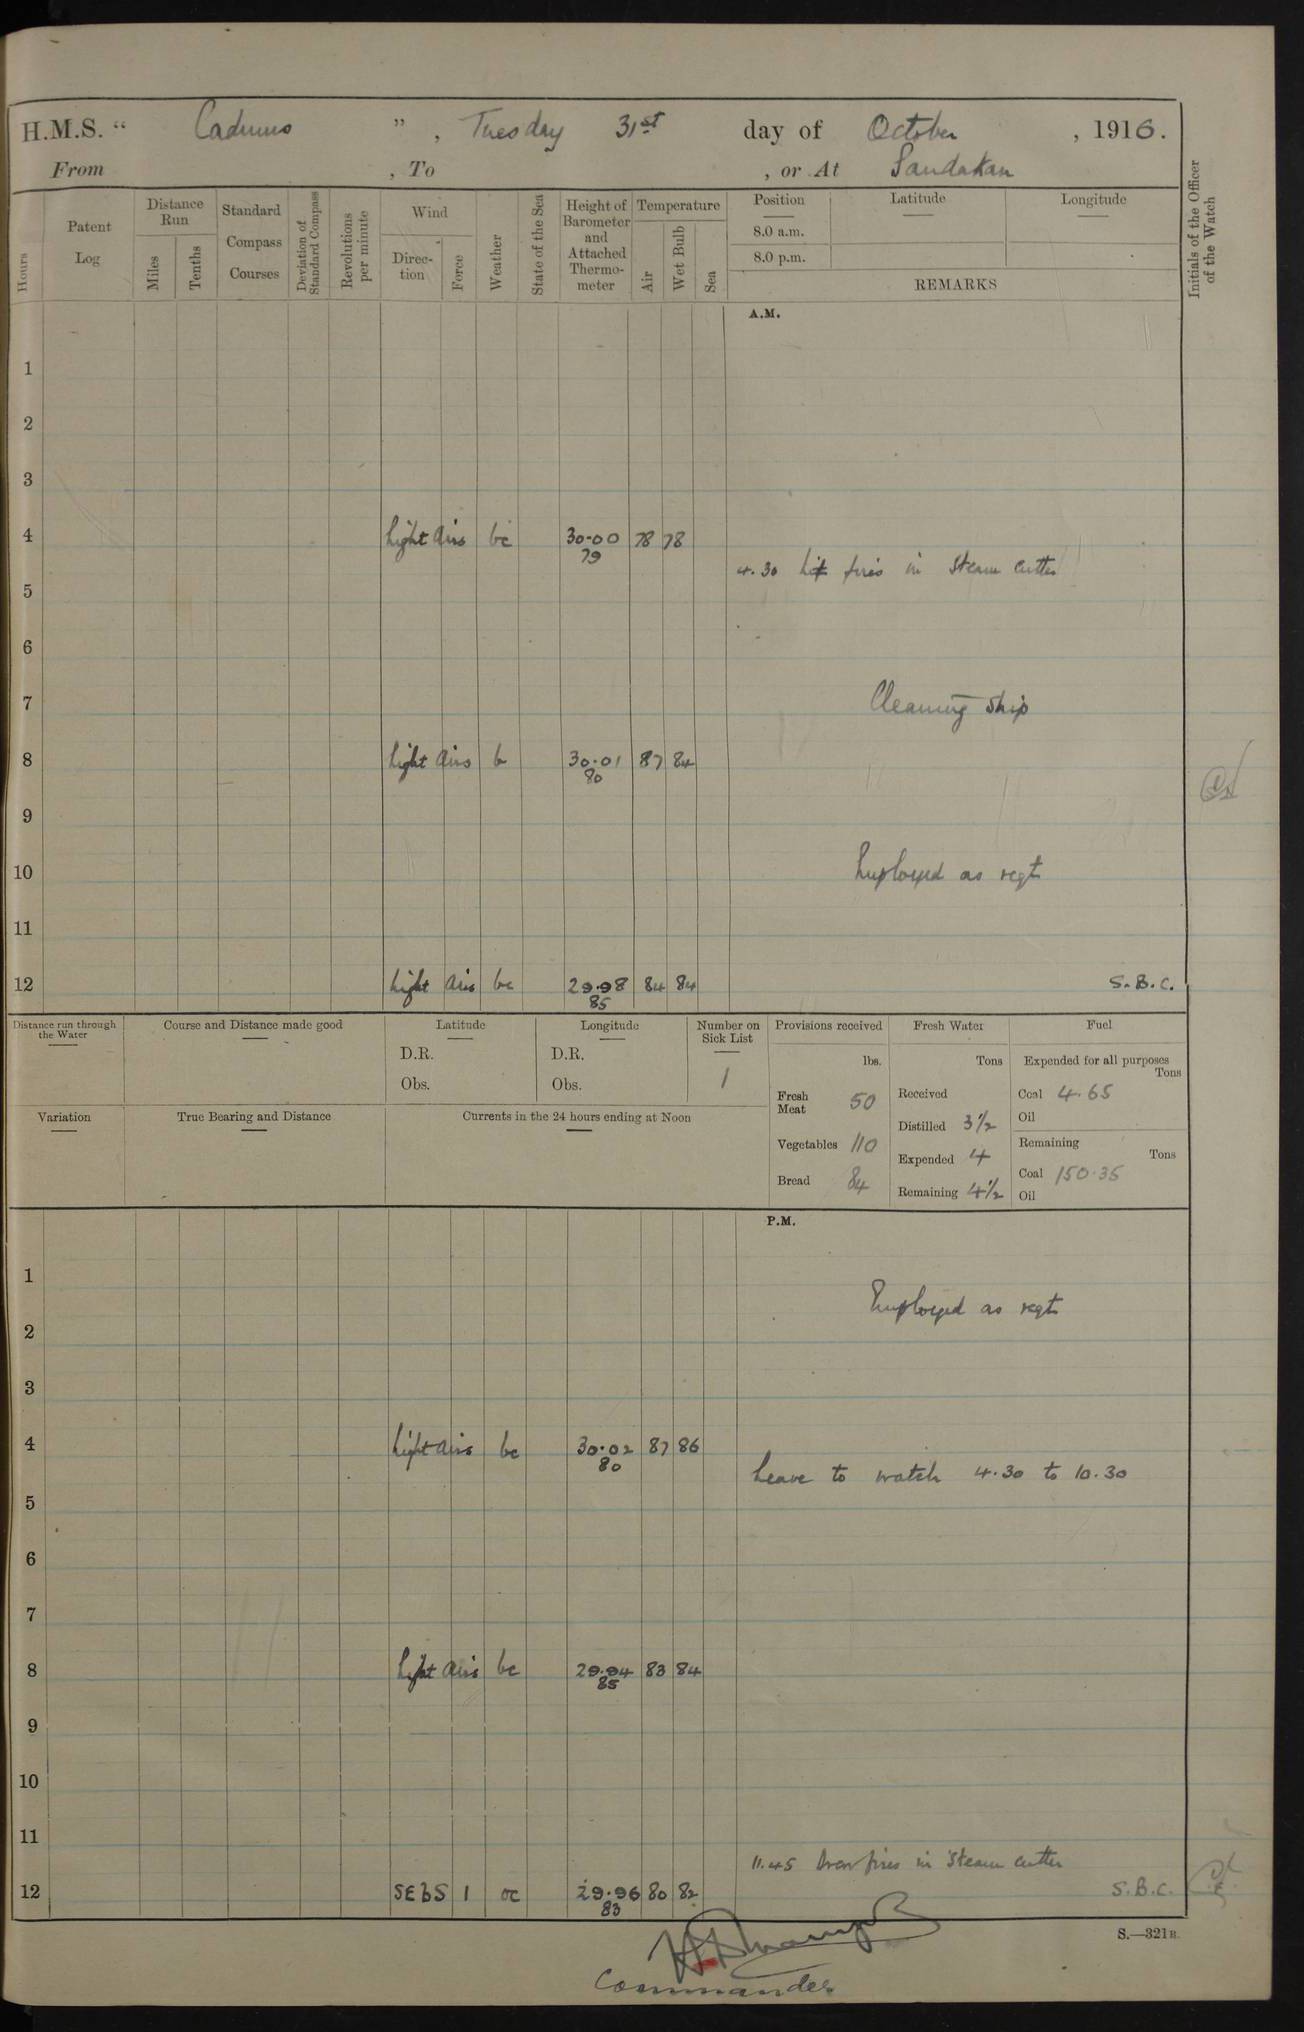 H.M.S. “ Cadmus ” , Tuesday 31st day of October , 1916.
From , To , or At Sandakan
Hours
Patent Log
Distance Run
Miles
Tenths
Standard Compass Courses
Deviation of Standard Compass
Revolutions per minute
Wind
Direction
Force
Weather
State of the Sea
Height of Barometer and Attached Thermometer
Temperature
Air
Wet Bulb
Sea
Position
8.0 a.m.
8.0 p.m.
Latitude
Longitude
REMARKS
Initials of the Officer of the Watch
A.M.
1
2
3
4 Light Airs bc 30.00 78 78
79
4.30 Lit fires in Steam Cutter
5
6
7 Cleaning Ship
8 Light Airs b 30.01 87 84
80
9
10 Employed as reqt
11
12 Light Airs bc 29.98 84 84 S.B.C.
85
Distance run through the Water
Course and Distance made good
Latitude
D.R.
Obs.
Longitude
D.R.
Obs.
Number on Sick List
1
Variation
True Bearing and Distance
Currents in the 24 hours ending at Noon
Provisions received
lbs.
Fresh Meat 50
Vegetables 110
Bread 84
Fresh Water
Tons
Received
Distilled 3½
Expended 4
Remaining 4½
Fuel
Expended for all purposes
Tons
Coal 4.65
Oil
Remaining
Tons
Coal 150.35
Oil
P.M.
1 Employed as reqt
2
3
4 Light Airs bc 30.02 87 86
80
Leave to watch 4.30 to 10.30
5
6
7
8 Light Airs bc 29.94 83 84
85
9
10
11
11.45 Drew fires in Steam Cutter
12 SEbS 1 oc 29.96 80 82 S.B.C.
83
S.—321B.
Commander